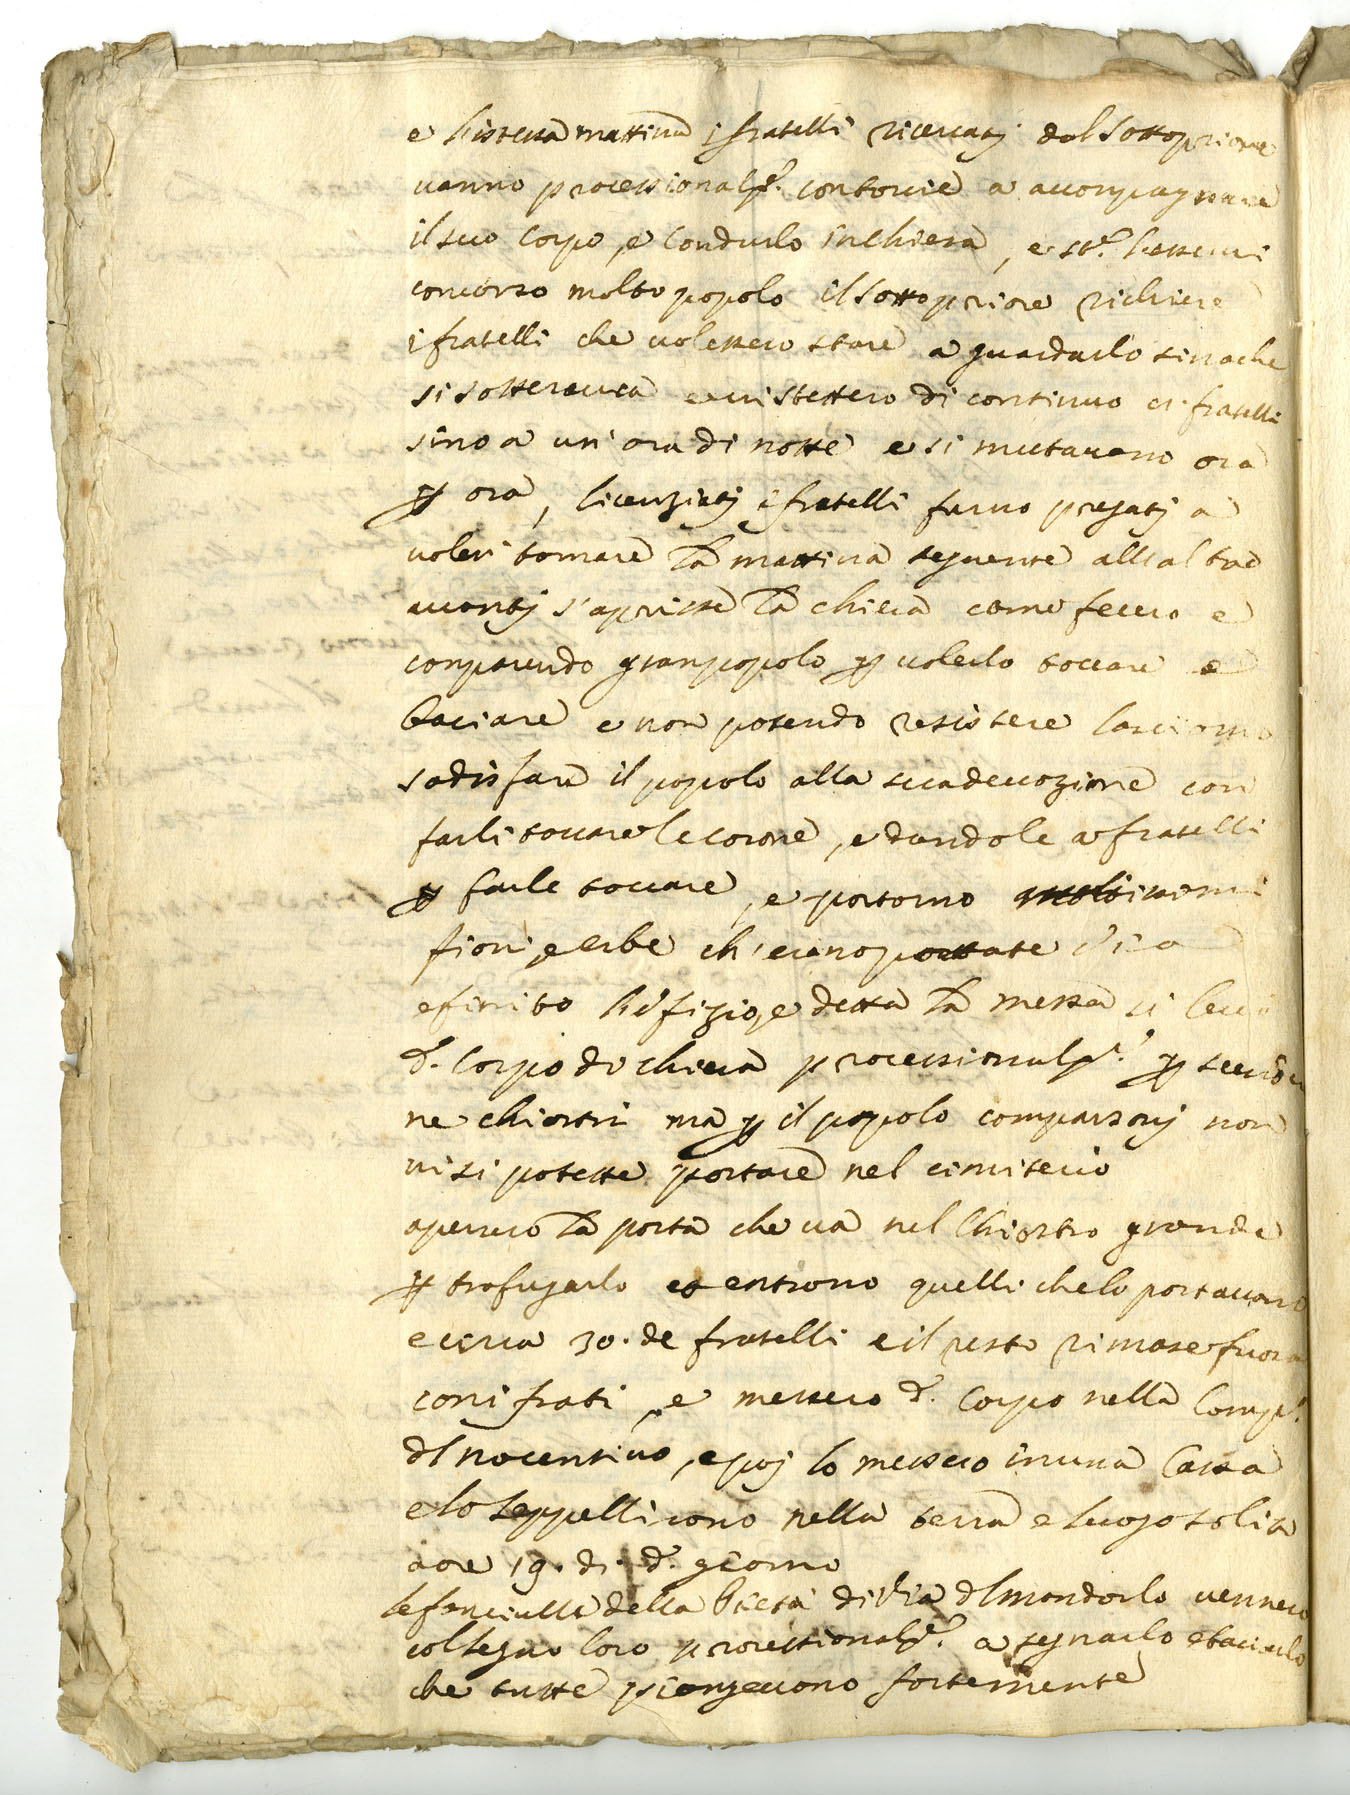 e l'istessa mattina i fratelli ricercatj dal Sottopriore
vanno processionalm.e con torcie a accompagnare
il suo Corpo, e condurlo in Chiesa, e st.e l'esservi
concorso molto popolo il Sottopriore richiese
i fratelli che volessero stare a guardarlo sinache
si sotterava e vi stettero di continuo fratelli
sino a un' ora di notte e si mutavano ora
p ora, licenziatj i fratelli furno pregatj a
voleri tornare la mattina seguente all'alba
avantj s'aprisse la chiesa come fecero e
comparendo gran popolo p volerlo toccare e
baciare e non potendo resistere lasciorno
sodisfare il popolo alla sua devozione con
farli toccare le corone, e dandole a fratelli
p farle toccare, e portorno moltissimi
fiori, e erbe ch'erano portate
e finito l'ufizio, e detta la messa si levò
d.o Corpo di chiesa processionalm.e p
ne chiostri ma p il popolo comparsovj non
vi si potette portare nel cimiterio
apersero la porta che va nel Chiostro grande
p trafugarlo et entrono quelli che lo portavono
e circa 30. de fratelli e il resto rimase fuora
con i frati, e messero d.o Corpo nella Comp.a
d'Inocentino, e poj lo messero in una Cassa
e lo seppellirono nella terra e luogo solita
a ore 19. di d.o giorno
le fanciulle della Pietà di Via dl mandorlo vennero
col segno loro processionalm.e a segnarlo e baciarlo
che tutte piangevono fortemente